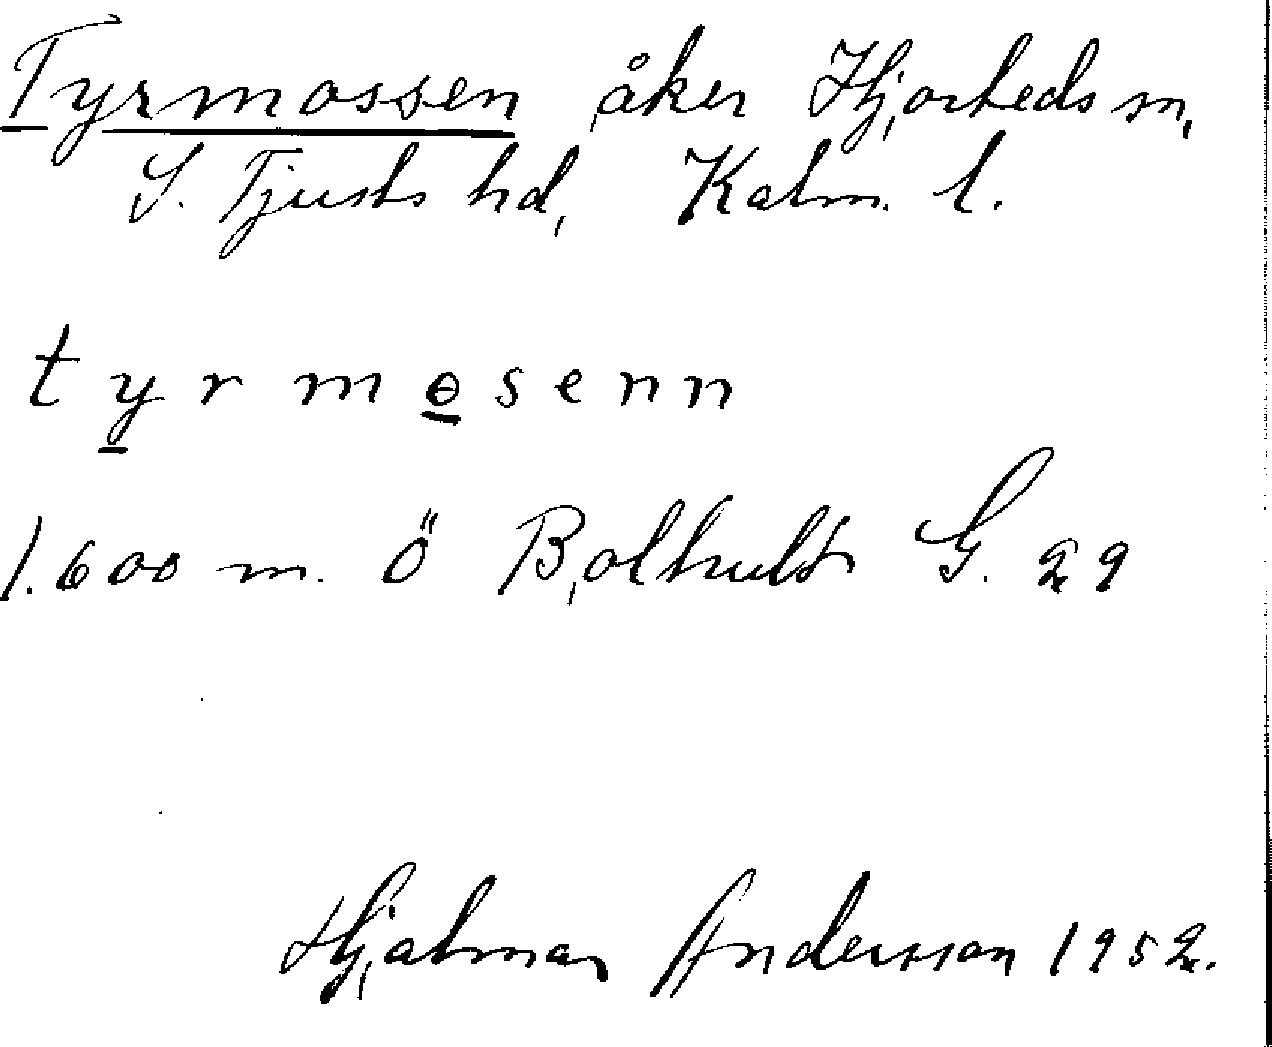 Tyrmossen åker Hjorteds sn,
S. Tjusts hd, Kalm. l.
tyrmɵsenn
1.600 m. Ö Bolhult G. 29
Hjalmar Andersson 1952.